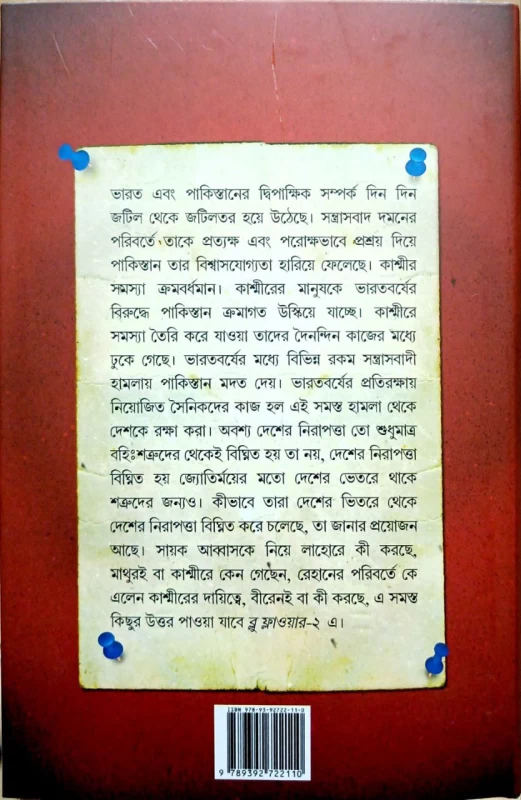 ভারত এবং পাকিস্তানের দ্বিপাক্ষিক সম্পর্ক দিন দিন
জটিল থেকে জটিলতর হয়ে উঠেছে। সন্ত্রাসবাদ দমনের
পরিবর্তে তাকে প্রত্যক্ষ এবং পরোক্ষভাবে প্রশ্রয় দিয়ে
পাকিস্তান তার বিশ্বাসযোগ্যতা হারিয়ে ফেলেছে। কাশ্মীর
সমস্যা ক্রমবর্ধমান। কাশ্মীরের মানুষকে ভারতবর্ষের
বিরুদ্ধে পাকিস্তান ক্রমাগত উস্কিয়ে যাচ্ছে। কাশ্মীরে
সমস্যা তৈরি করে যাওয়া তাদের দৈনন্দিন কাজের মধ্যে
ঢুকে গেছে। ভারতবর্ষের মধ্যে বিভিন্ন রকম সন্ত্রাসবাদী
হামলায় পাকিস্তান মদত দেয়। ভারতবর্ষের প্রতিরক্ষায়
নিয়োজিত সৈনিকদের কাজ হল এই সমস্ত হামলা থেকে
দেশকে রক্ষা করা। অবশ্য দেশের নিরাপত্তা তো শুধুমাত্র
বহিঃশত্রুদের থেকেই বিঘ্নিত হয় তা নয়, দেশের নিরাপত্তা
বিঘ্নিত হয় জ্যোতির্ময়ের মতো দেশের ভেতরে থাকে
শত্রুদের জন্যও। কীভাবে তারা দেশের ভিতরে থেকে
দেশের নিরাপত্তা বিঘ্নিত করে চলেছে, তা জানার প্রয়োজন
আছে। সায়ক আব্বাসকে নিয়ে লাহোরে কী করছে,
মাথুরই বা কাশ্মীরে কেন গেছেন, রেহানের পরিবর্তে কে
এলেন কাশ্মীরের দায়িত্বে, বীরেনই বা কী করছে, এ সমস্ত
কিছুর উত্তর পাওয়া যাবে ব্লু ফ্লাওয়ার-২ এ।
ISBN 978-93-92722-11-0
9 789392 722110